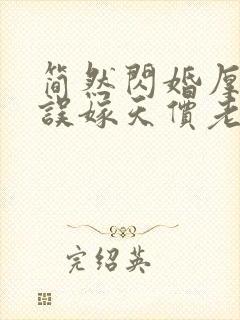 简然閃婚厚
誤嫁天價老
完绍英